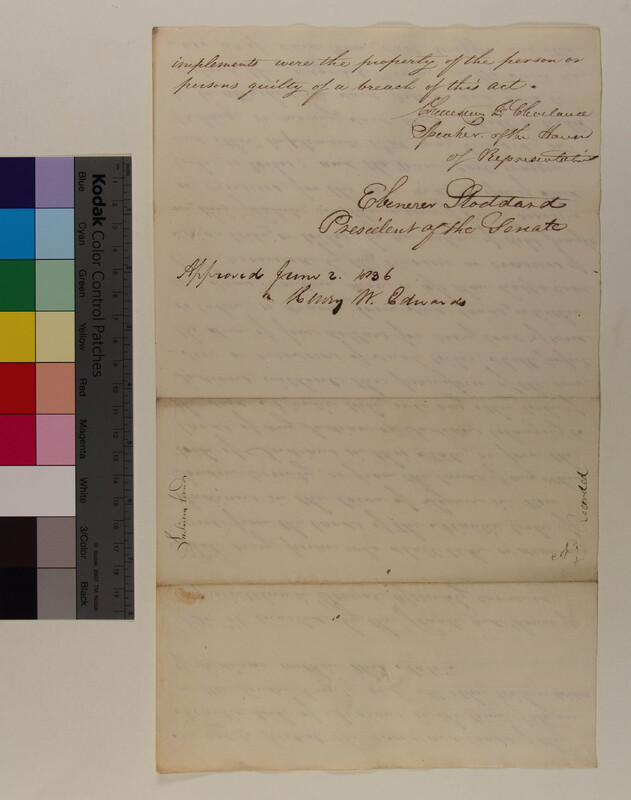 implements were the property of the person or
persons guilty of a breach of this act.
Chauncey F. Cleveland
Speaker of the House
of Representatives
Ebenezer Stoddard
President of the Senate
Approved June 2. 1836
Henry W. Edwards
Indian lands
Recorded
Kodak Color Control Patches
Blue
Cyan
Green
Yellow
Red
Magenta
White
3/Color
Black